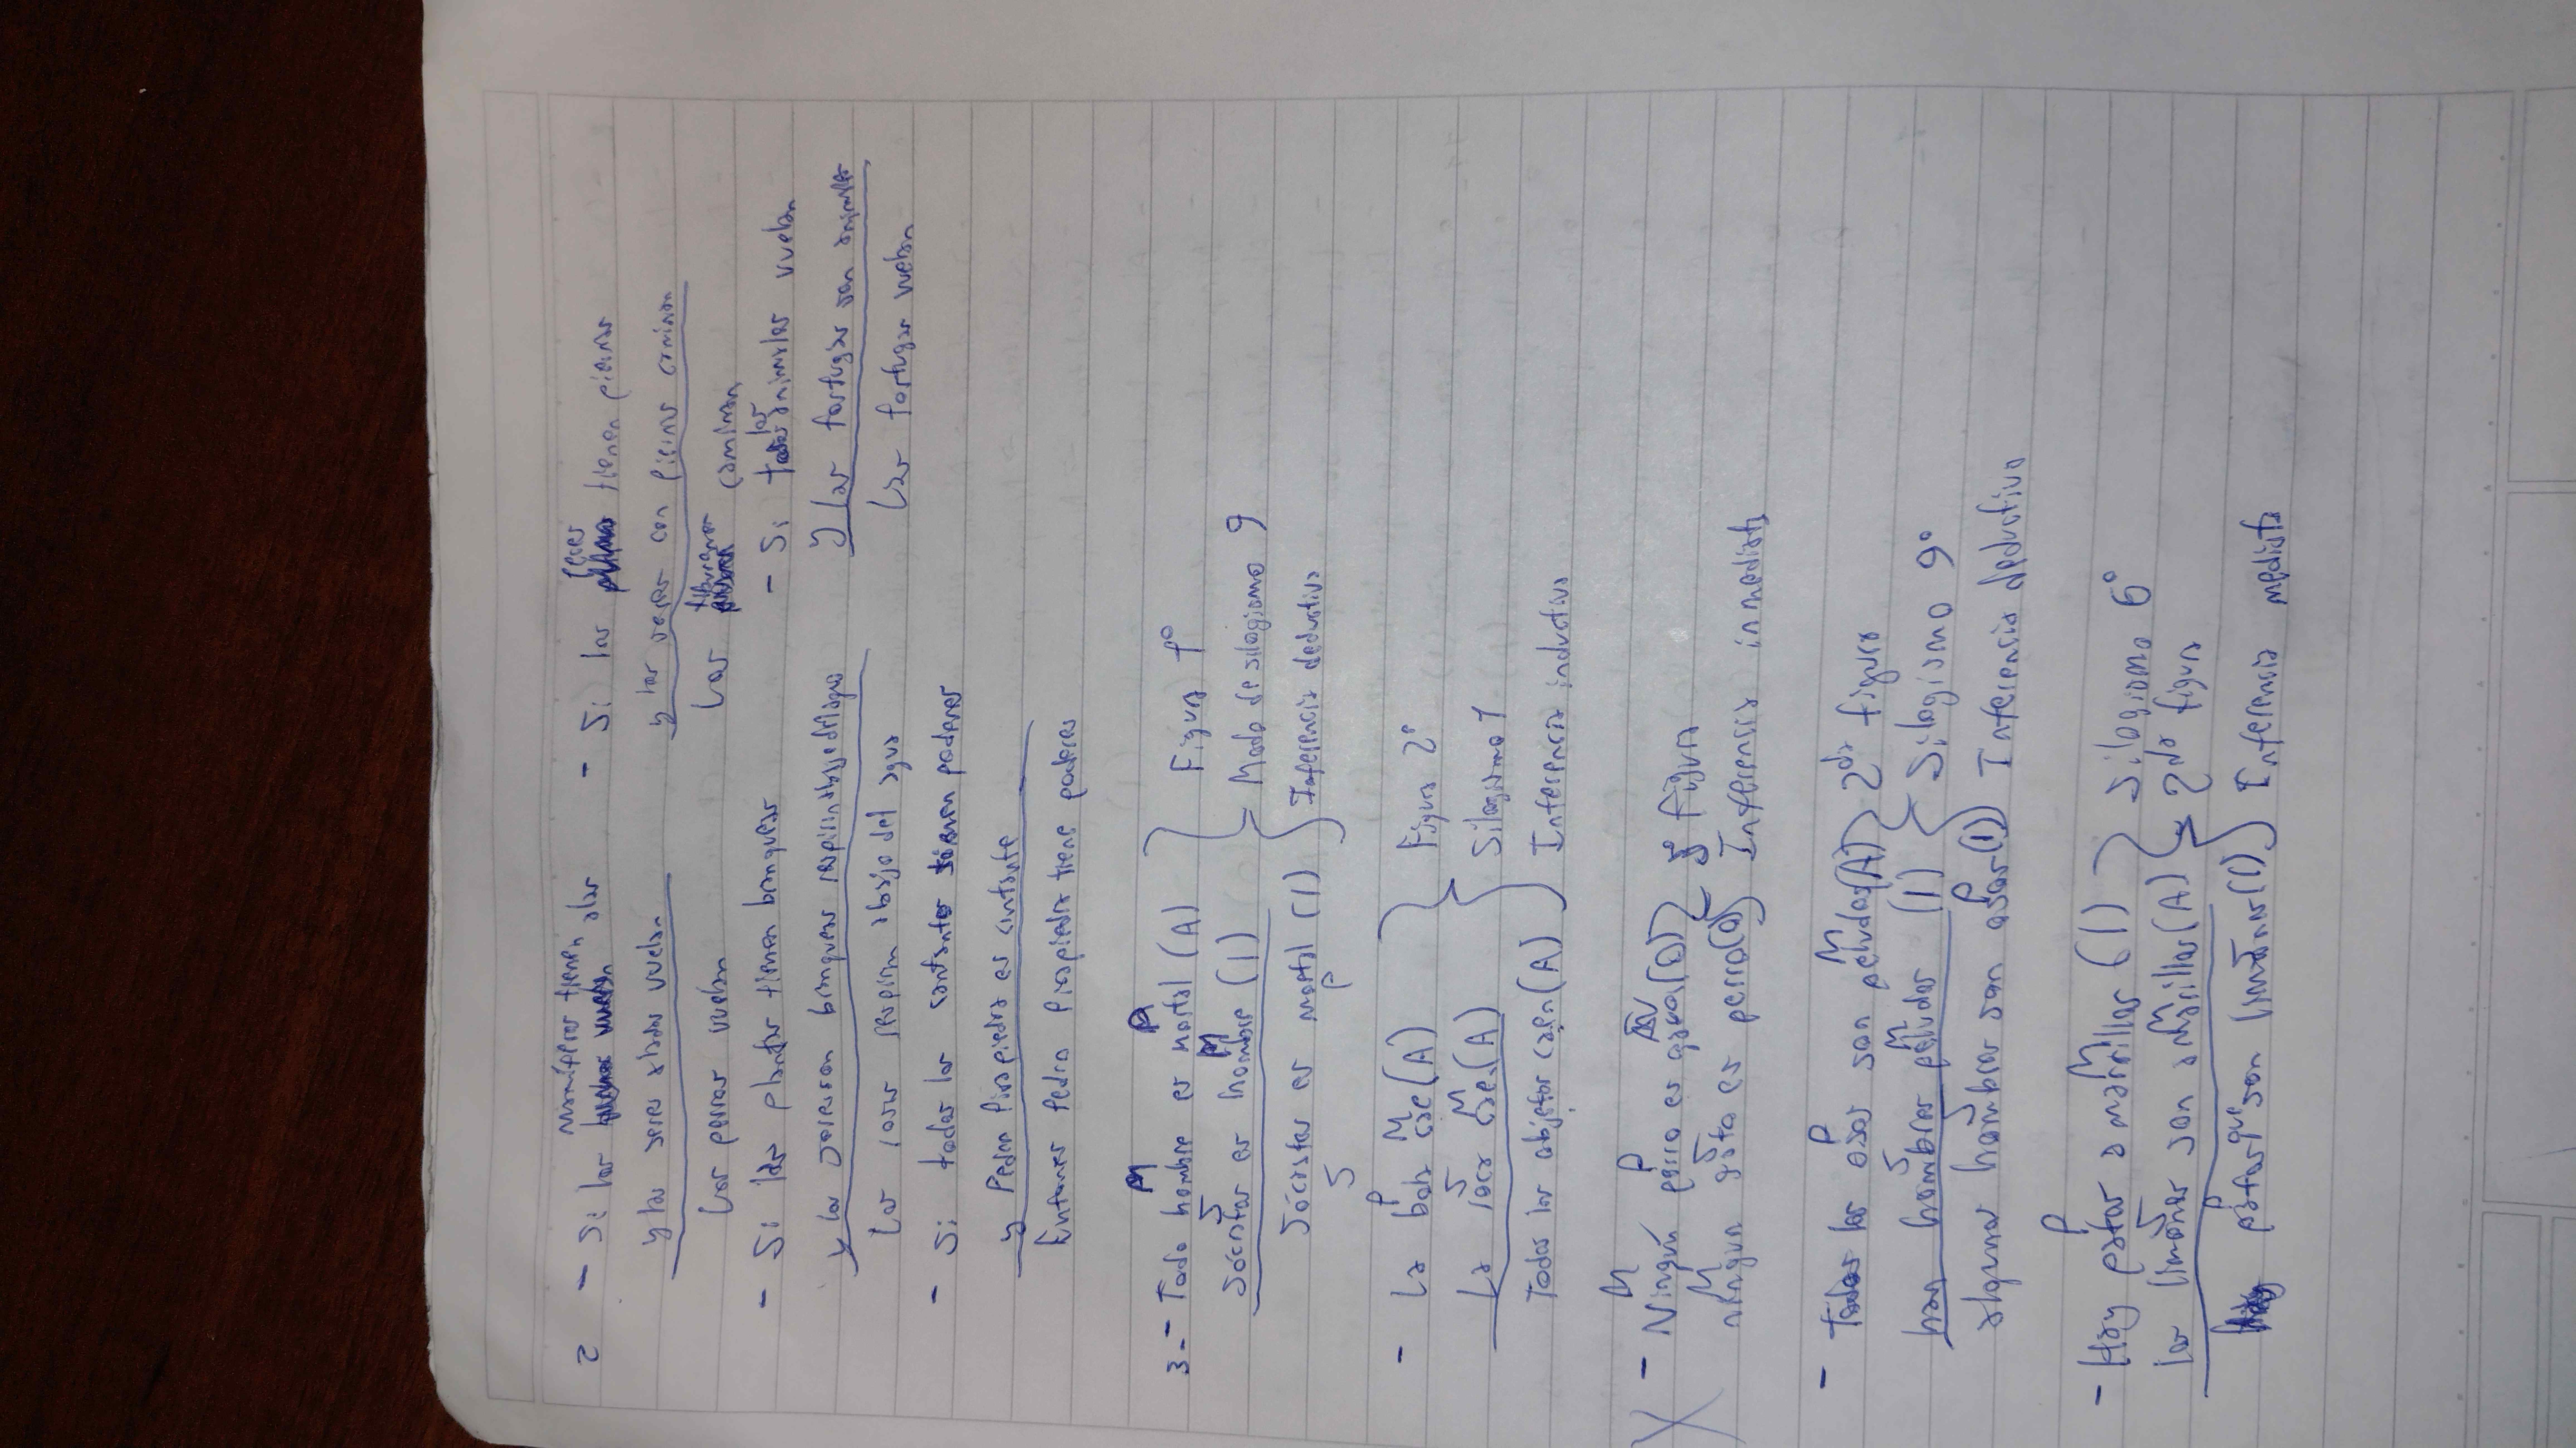 2 - Si los mamíferos tienen alas
y los seres alados vuelan
Los perros vuelan
- Si las plantas tienen branqueas
y los seres con branqueas respiran abajo del agua
Las rosas respiran abajo del agua
- Si todos los cantantes tienen poderes
y Pedro Piezapiedra es cantante
Entonces Pedro Piezapiedra tiene poderes
- Si los peces tienen piernas
y los seres con piernas caminan
Los tiburones caminan
- Si todos los animales vuelan
y las tortugas son animales
Las tortugas vuelan
3- - Todo hombre es mortal (A)
M P
Sócrates es hombre (I)
S M
Sócrates es mortal (I)
S P
Figura 1°
Modo de silogismo 9
Inferencia deductiva
- La bola cae (A)
P M
La roca cae (A)
S M
Todos los objetos caen (A)
Figura 2°
Silogismo 1
Inferencia inductiva
X - Ningún perro es gato (O)
M P
ningun gato es perro (O)
M S
3° figura
Inferencia inmediata
- Todos los osos son peludos (A)
P M
hay hombres peludos (I)
S M
algunos hombres son osos (I)
S P
2da figura
Silogismo 9°
Inferencia deductiva
- Hay patos amarillos (I)
P M
los limones son amarillos (A)
S M
Hay patos que son limones (I)
P S
Silogismo 6°
2da figura
Inferencia mediata